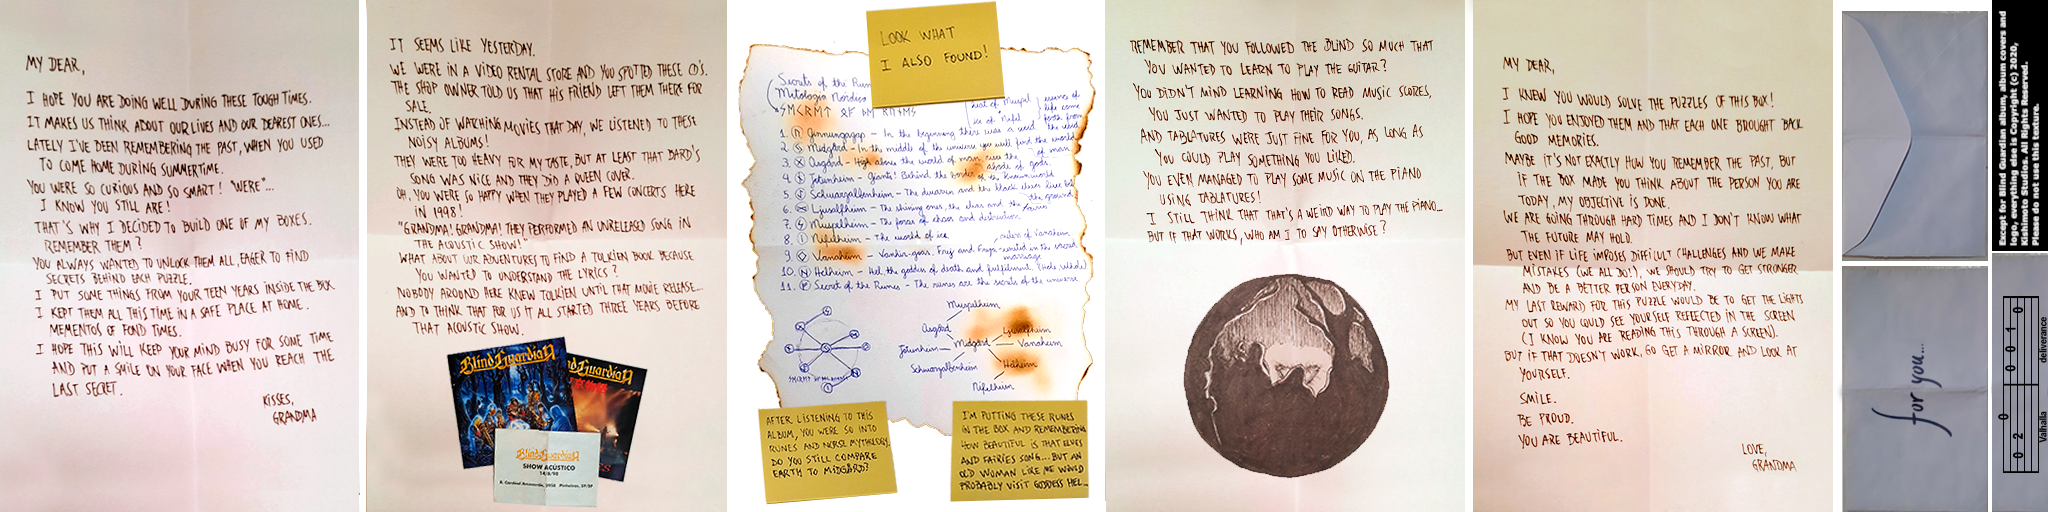 MY DEAR,
I HOPE YOU ARE DOING WELL DURING THESE TOUGH TIMES.
IT MAKES US THINK ABOUT OUR LIVES AND OUR DEAREST ONES...
LATELY I'VE BEEN REMEMBERING THE PAST, WHEN YOU USED
TO COME HOME DURING SUMMERTIME.
YOU WERE SO CURIOUS AND SO SMART! "WERE"...
I KNOW YOU STILL ARE!
THAT'S WHY I DECIDED TO BUILD ONE OF MY BOXES.
REMEMBER THEM?
YOU ALWAYS WANTED TO UNLOCK THEM ALL, EAGER TO FIND
SECRETS BEHIND EACH PUZZLE.
I PUT SOME THINGS FROM YOUR TEEN YEARS INSIDE THE BOX.
I KEPT THEM ALL THIS TIME IN A SAFE PLACE AT HOME.
MEMENTOS OF FOND TIMES.
I HOPE THIS WILL KEEP YOUR MIND BUSY FOR SOME TIME
AND PUT A SMILE ON YOUR FACE WHEN YOU REACH THE
LAST SECRET.
KISSES,
GRANDMA
IT SEEMS LIKE YESTERDAY.
WE WERE IN A VIDEO RENTAL STORE AND YOU SPOTTED THESE CD'S.
THE SHOP OWNER TOLD US THAT HIS FRIEND LEFT THEM THERE FOR
SALE.
INSTEAD OF WATCHING MOVIES THAT DAY, WE LISTENED TO THESE
NOISY ALBUMS!
THEY WERE TOO HEAVY FOR MY TASTE, BUT AT LEAST THAT BARD'S
SONG WAS NICE AND THEY DID A QUEEN COVER.
OH, YOU WERE SO HAPPY WHEN THEY PLAYED A FEW CONCERTS HERE
IN 1998!
"GRANDMA! GRANDMA! THEY PERFORMED AN UNRELEASED SONG IN
THE ACOUSTIC SHOW!"
WHAT ABOUT OUR ADVENTURES TO FIND A TOLKIEN BOOK BECAUSE
YOU WANTED TO UNDERSTAND THE LYRICS?
NOBODY AROUND HERE KNEW TOLKIEN UNTIL THAT MOVIE RELEASE...
AND TO THINK THAT FOR US IT ALL STARTED THREE YEARS BEFORE
THAT ACOUSTIC SHOW.
Blind Guardian
Guardian
Blind Guardian
SHOW ACÚSTICO
14/8/98
R. Cardeal Arcoverde, Pinheiros, SP/SP
LOOK WHAT
I ALSO FOUND!
Secrets of the Run
Mitologia Nórdica
ᛊᛖᚲᚱᛖᛏ
of Muspel
ice of Nifel
ruins of
life come
forth from
the void
1. Ginnungagap - In the beginning there was a void
2. Midgard - In the middle of the universe you will find the world of man
3. Asgard - High above the world of man sees the abode of gods.
4. Jotunheim - Giants! Behind the border of the known world
5. Schwarzalbenheim - The dwarven and the black elves live bel the ground
6. Ljusalfheim - The shining ones, the elves and the fairies
7. Muspelheim - The force of chaos and destruction.
8. Nifelheim - The world of ice.
9. Vanaheim - Vankir-gods. Freij and Freya-united in the sacred marriage
rulers of Vanaheim
10. Helheim - Hel, the goddess of death and fulfillment.
11. Secret of the Runes - The runes are the secrets of the universe
Muspelheim
Asgard
Ljusalfheim
Jotunheim
Midgard
Vanaheim
Schwarzalbenheim
Helheim
Nifelheim
AFTER LISTENING TO THIS
ALBUM, YOU WERE SO INTO
RUNES AND NORSE MYTHOLOGY.
DO YOU STILL COMPARE
EARTH TO MIDGARD?
I'M PUTTING THESE RUNES
IN THE BOX AND REMEMBERING
HOW BEAUTIFUL IS THAT ELVES
AND FAIRIES SONG... BUT AN
OLD WOMAN LIKE ME WOULD
PROBABLY VISIT GODDESS HEL...
REMEMBER THAT YOU FOLLOWED THE BLIND SO MUCH THAT
YOU WANTED TO LEARN TO PLAY THE GUITAR?
YOU DIDN'T MIND LEARNING HOW TO READ MUSIC SCORES,
YOU JUST WANTED TO PLAY THEIR SONGS.
AND TABLATURES WERE JUST FINE FOR YOU, AS LONG AS
YOU COULD PLAY SOMETHING YOU LIKED.
YOU EVEN MANAGED TO PLAY SOME MUSIC ON THE PIANO
USING TABLATURES!
I STILL THINK THAT THAT'S A WEIRD WAY TO PLAY THE PIANO...
BUT IF THAT WORKS, WHO AM I TO SAY OTHERWISE?
MY DEAR,
I KNEW YOU WOULD SOLVE THE PUZZLES OF THIS BOX!
I HOPE YOU ENJOYED THEM AND THAT EACH ONE BROUGHT BACK
GOOD MEMORIES.
MAYBE IT'S NOT EXACTLY HOW YOU REMEMBER THE PAST, BUT
IF THE BOX MADE YOU THINK ABOUT THE PERSON YOU ARE
TODAY, MY OBJECTIVE IS DONE.
WE ARE GOING THROUGH HARD TIMES AND I DON'T KNOW WHAT
THE FUTURE MAY HOLD.
BUT EVEN IF LIFE IMPOSES DIFFICULT CHALLENGES AND WE MAKE
MISTAKES (WE ALL DO!), WE SHOULD TRY TO GET STRONGER
AND BE A BETTER PERSON EVERYDAY.
MY LAST REWARD FOR THIS PUZZLE WOULD BE TO GET THE LIGHTS
OUT SO YOU COULD SEE YOURSELF REFLECTED IN THE SCREEN
(I KNOW YOU ARE READING THIS THROUGH A SCREEN).
BUT IF THAT DOESN'T WORK, GO GET A MIRROR AND LOOK AT
YOURSELF.
SMILE.
BE PROUD.
YOU ARE BEAUTIFUL.
LOVE,
GRANDMA
for you...
Except for Blind Guardian album, album covers and
logo, everything else is Copyright (c) 2020,
Kishimoto Studios. All Rights Reserved.
Please do not use this texture.
0 2 0 0 0 0 1 0
Valhalla deliverance